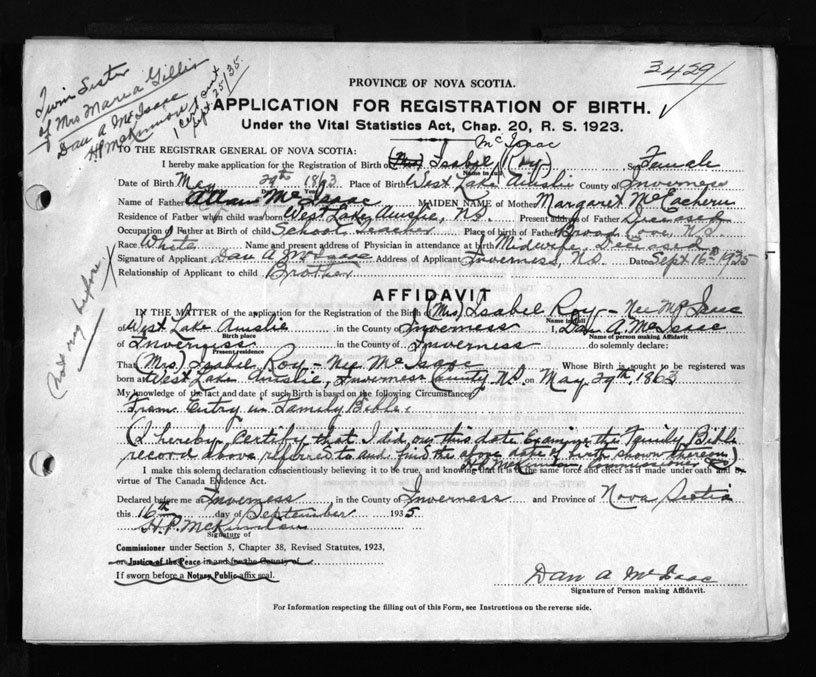 Twin Sister
of Mrs Maria Gillis
Dan A McIsaac
H P McKinnon
1 cert sent
Sept. 25/35.
3429
PROVINCE OF NOVA SCOTIA.
APPLICATION FOR REGISTRATION OF BIRTH.
Under the Vital Statistics Act, Chap. 20, R. S. 1923.
TO THE REGISTRAR GENERAL OF NOVA SCOTIA: McIsaac
I hereby make application for the Registration of Birth of (Mrs) Isabel (Roy) Sex Female
Date of Birth May 29th 1863 Place of Birth West Lake Ainslie County of Inverness
Name of Father Allan McIsaac MAIDEN NAME of Mother Margaret McEachern
Residence of Father when child was born West Lake Ainslie, N.S. Present Address of Father Deceased
Occupation of Father at Birth of child School Teacher Place of birth of Father Broad Cove N.S.
Race White Name and present address of Physician in attendance at birth Midwife, Deceased
Signature of Applicant Dan A McIsaac Address of Applicant Inverness, N.S. Date Sept 16th 1935
Relationship of Applicant to child Brother
(not reg before)
AFFIDAVIT
IN THE MATTER of the application for the Registration of the Birth of (Mrs) Isabel Roy - Nee McIsaac
of West Lake Ainslie in the County of Inverness I, Dan A. McIsaac
Birth place Name of person making Affidavit
of Inverness in the County of Inverness do solemnly declare:
Present residence
That (Mrs) Isabel Roy - Nee McIsaac Whose Birth is sought to be registered was
born at West Lake Ainslie, Inverness County N.S. on May 29th, 1863
My knowledge of the fact and date of such Birth is based on the following Circumstances:
From Entry in Family Bible.
(I hereby certify that I did on this date examine the Family Bible
record above referred to and find the above date of birth shown thereon)
H P McKinnon Commissioner
I make this solemn declaration conscientiously believing it to be true, and knowing that it is of the same force and effect as if made under oath and by
virtue of The Canada Evidence Act.
Declared before me at Inverness in the County of Inverness and Province of Nova Scotia
this 16th day of September 1935
H.P. McKinnon
Signature of
Commissioner under Section 5, Chapter 38, Revised Statutes, 1923,
or Justice of the Peace in and for the County of
If sworn before a Notary Public affix seal.
Dan A McIsaac
Signature of Person making Affidavit.
For Information respecting the filling out of this Form, see Instructions on the reverse side.